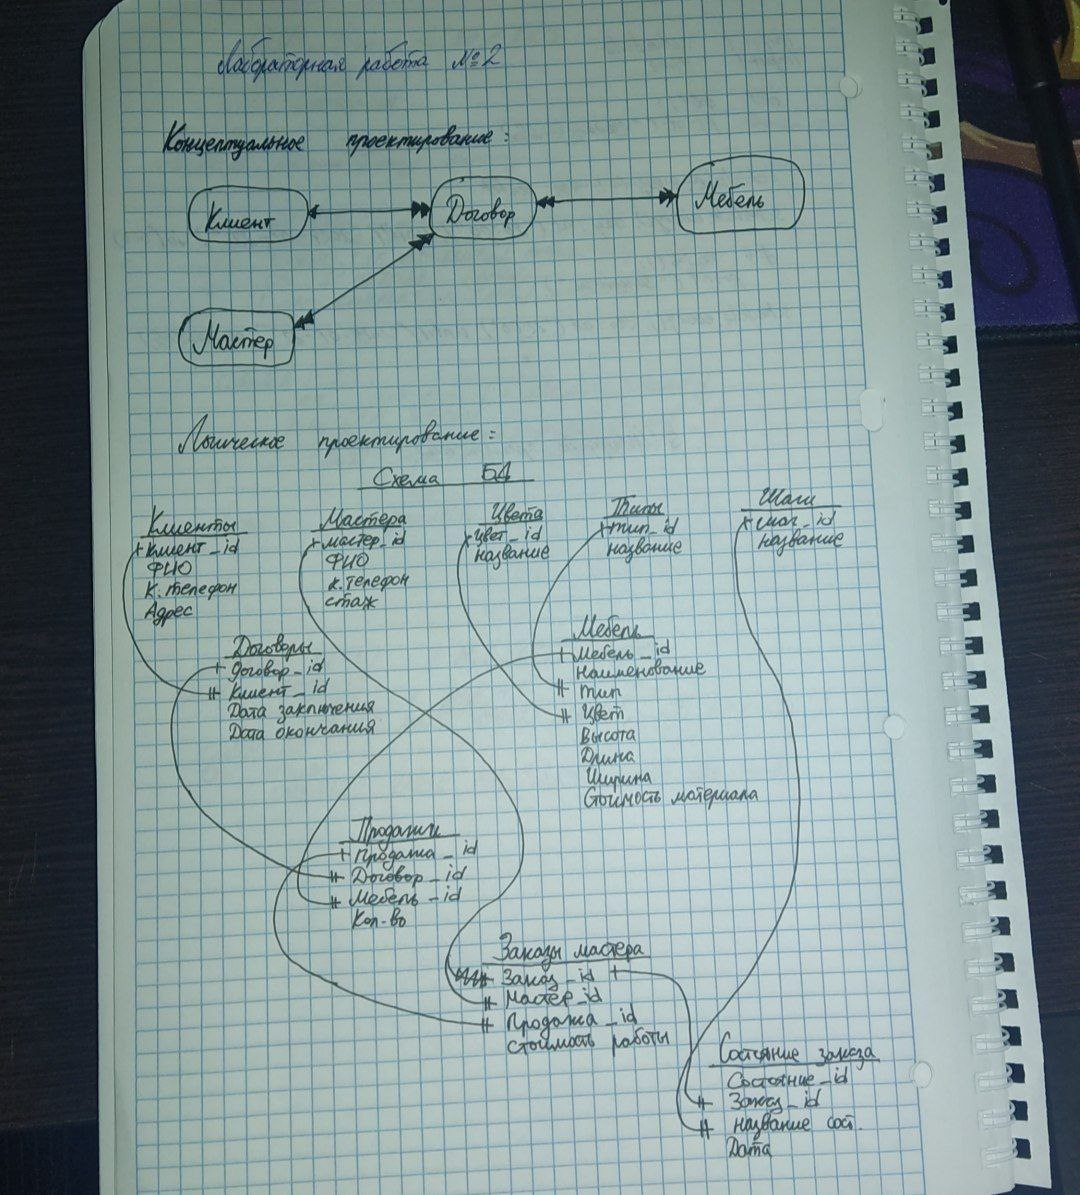 Лабораторная работа №2
Концептуальное проектирование:
Клиент
Договор
Мебель
Мастер
Логическое проектирование:
Схема БД
Клиенты
клиент_id
ФИО
К. телефон
Адрес
Мастера
мастер_id
ФИО
к. телефон
стаж
Цвета
цвет_id
название
Типы
тип_id
название
Шаги
шаг_id
название
Договоры
договор_id
Клиент_id
Дата заключения
Дата окончания
Мебель
Мебель_id
Наименование
Тип
Цвет
Высота
Длина
Ширина
Стоимость материала
Продажи
Продажа_id
Договор_id
Мебель_id
Кол-во
Заказы мастера
Заказ_id
Мастер_id
Продажа_id
стоимость работы
Состояние заказа
Состояние_id
Заказ_id
название сост.
Дата